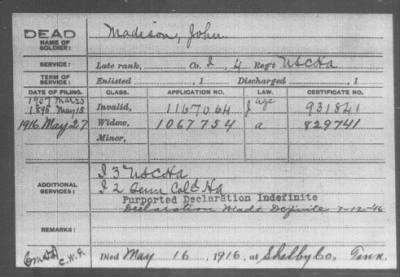 DEAD
NAME OF SOLDIER: Madison, John
SERVICE: Late rank, Co. I, 4 Reg't USCHa
TERM OF SERVICE: Enlisted , 1 Discharged , 1
DATE OF FILING. CLASS. APPLICATION NO. LAW. CERTIFICATE NO.
1907 Mar 23
1895 May 18 Invalid, 1167064 J age 931841
1916 May 27 Widow, 1067754 a 829741
Minor,
ADDITIONAL SERVICES: I 3" USCHa
I 2 Tenn Cold Ha
Purported Declaration Indefinite
Declaration Made Definite 7-12-46
REMARKS:
C.W.R.
Died May 16, 1916, at Shelby Co, Tenn.